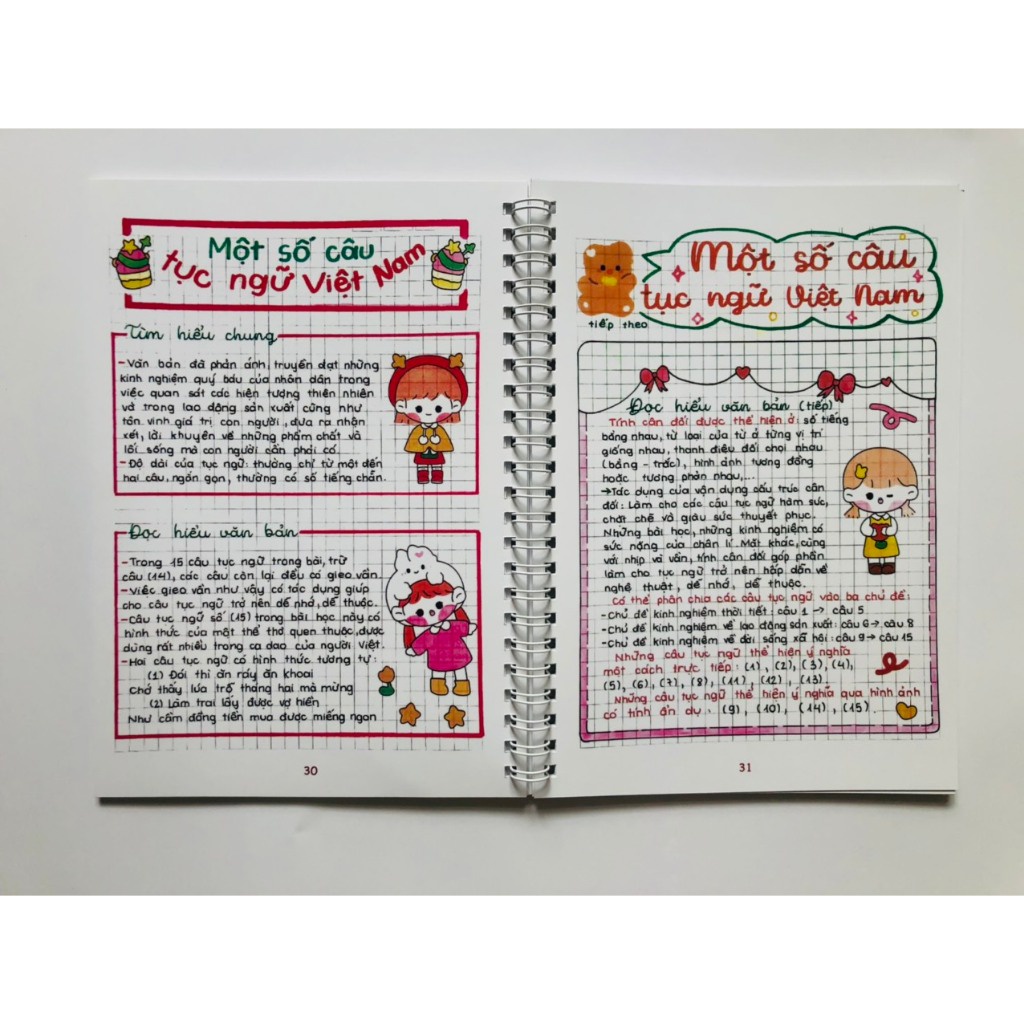 Một số câu
tục ngữ Việt Nam
Tìm hiểu chung
- Văn bản đã phản ánh, truyền đạt những
kinh nghiệm quý báu của nhân dân trong
việc quan sát các hiện tượng thiên nhiên
và trong lao động sản xuất cũng như
tôn vinh giá trị con người, đưa ra nhận
xét, lời khuyên về những phẩm chất và
lối sống mà con người cần phải có.
- Độ dài của tục ngữ: thường chỉ từ một đến
hai câu, ngắn gọn, thường có số tiếng chẵn.
Đọc hiểu văn bản
- Trong 15 câu tục ngữ trong bài, trừ
câu (14), các câu còn lại đều có gieo vần
- Việc gieo vần như vậy có tác dụng giúp
cho câu tục ngữ trở nên dễ nhớ, dễ thuộc.
- Câu tục ngữ số (15) trong bài học này có
hình thức của một thể thơ quen thuộc, được
dùng rất nhiều trong ca dao của người Việt.
- Hai câu tục ngữ có hình thức tương tự:
(1) Đói thì ăn ráy ăn khoai
Chớ thấy lúa trỗ tháng hai mà mừng
(2) Làm trai lấy được vợ hiền
Như cầm đồng tiền mua được miếng ngon
30
Một số câu
tục ngữ Việt Nam
tiếp theo
Đọc hiểu văn bản (tiếp)
Tính cân đối được thể hiện ở số tiếng
bằng nhau, từ loại của từ ở từng vị trí
giống nhau, thanh điệu đối chọi nhau
(bằng - trắc), hình ảnh tương đồng
hoặc tương phản nhau,...
→ Tác dụng của vận dụng cấu trúc cân
đối: Làm cho các câu tục ngữ hàm súc,
chặt chẽ và giàu sức thuyết phục.
Những bài học, những kinh nghiệm có
sức nặng của chân lí. Mặt khác, cùng
với nhịp và vần, tính cân đối góp phần
làm cho tục ngữ trở nên hấp dẫn về
nghệ thuật, dễ nhớ, dễ thuộc.
Có thể phân chia các câu tục ngữ vào ba chủ đề:
- Chủ đề kinh nghiệm thời tiết: câu 1 → câu 5
- Chủ đề kinh nghiệm về lao động sản xuất: câu 6 → câu 8
- Chủ đề kinh nghiệm về đời sống xã hội: câu 9 → câu 15
Những câu tục ngữ thể hiện ý nghĩa
một cách trực tiếp: (1), (2), (3), (4),
(5), (6), (7), (8), (11), (12), (13).
Những câu tục ngữ thể hiện ý nghĩa qua hình ảnh
có tính ẩn dụ: (9), (10), (14), (15).
31